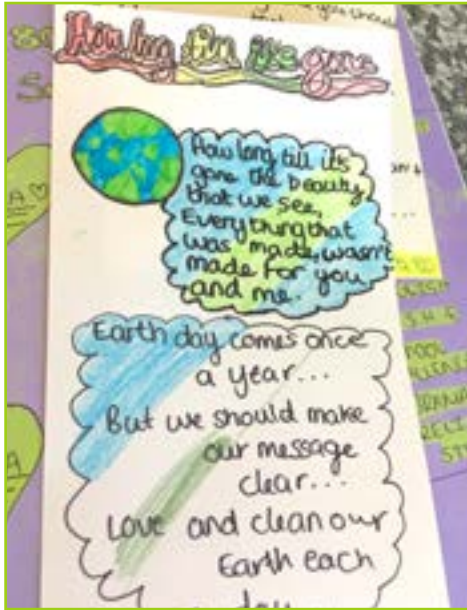 How long till it's gone
How long till it's
gone the beauty
that we see,
Everything that
was made, wasn't
made for you
and me.
Earth day comes once
a year...
But we should make
our message
clear...
Love and clean our
Earth each
day